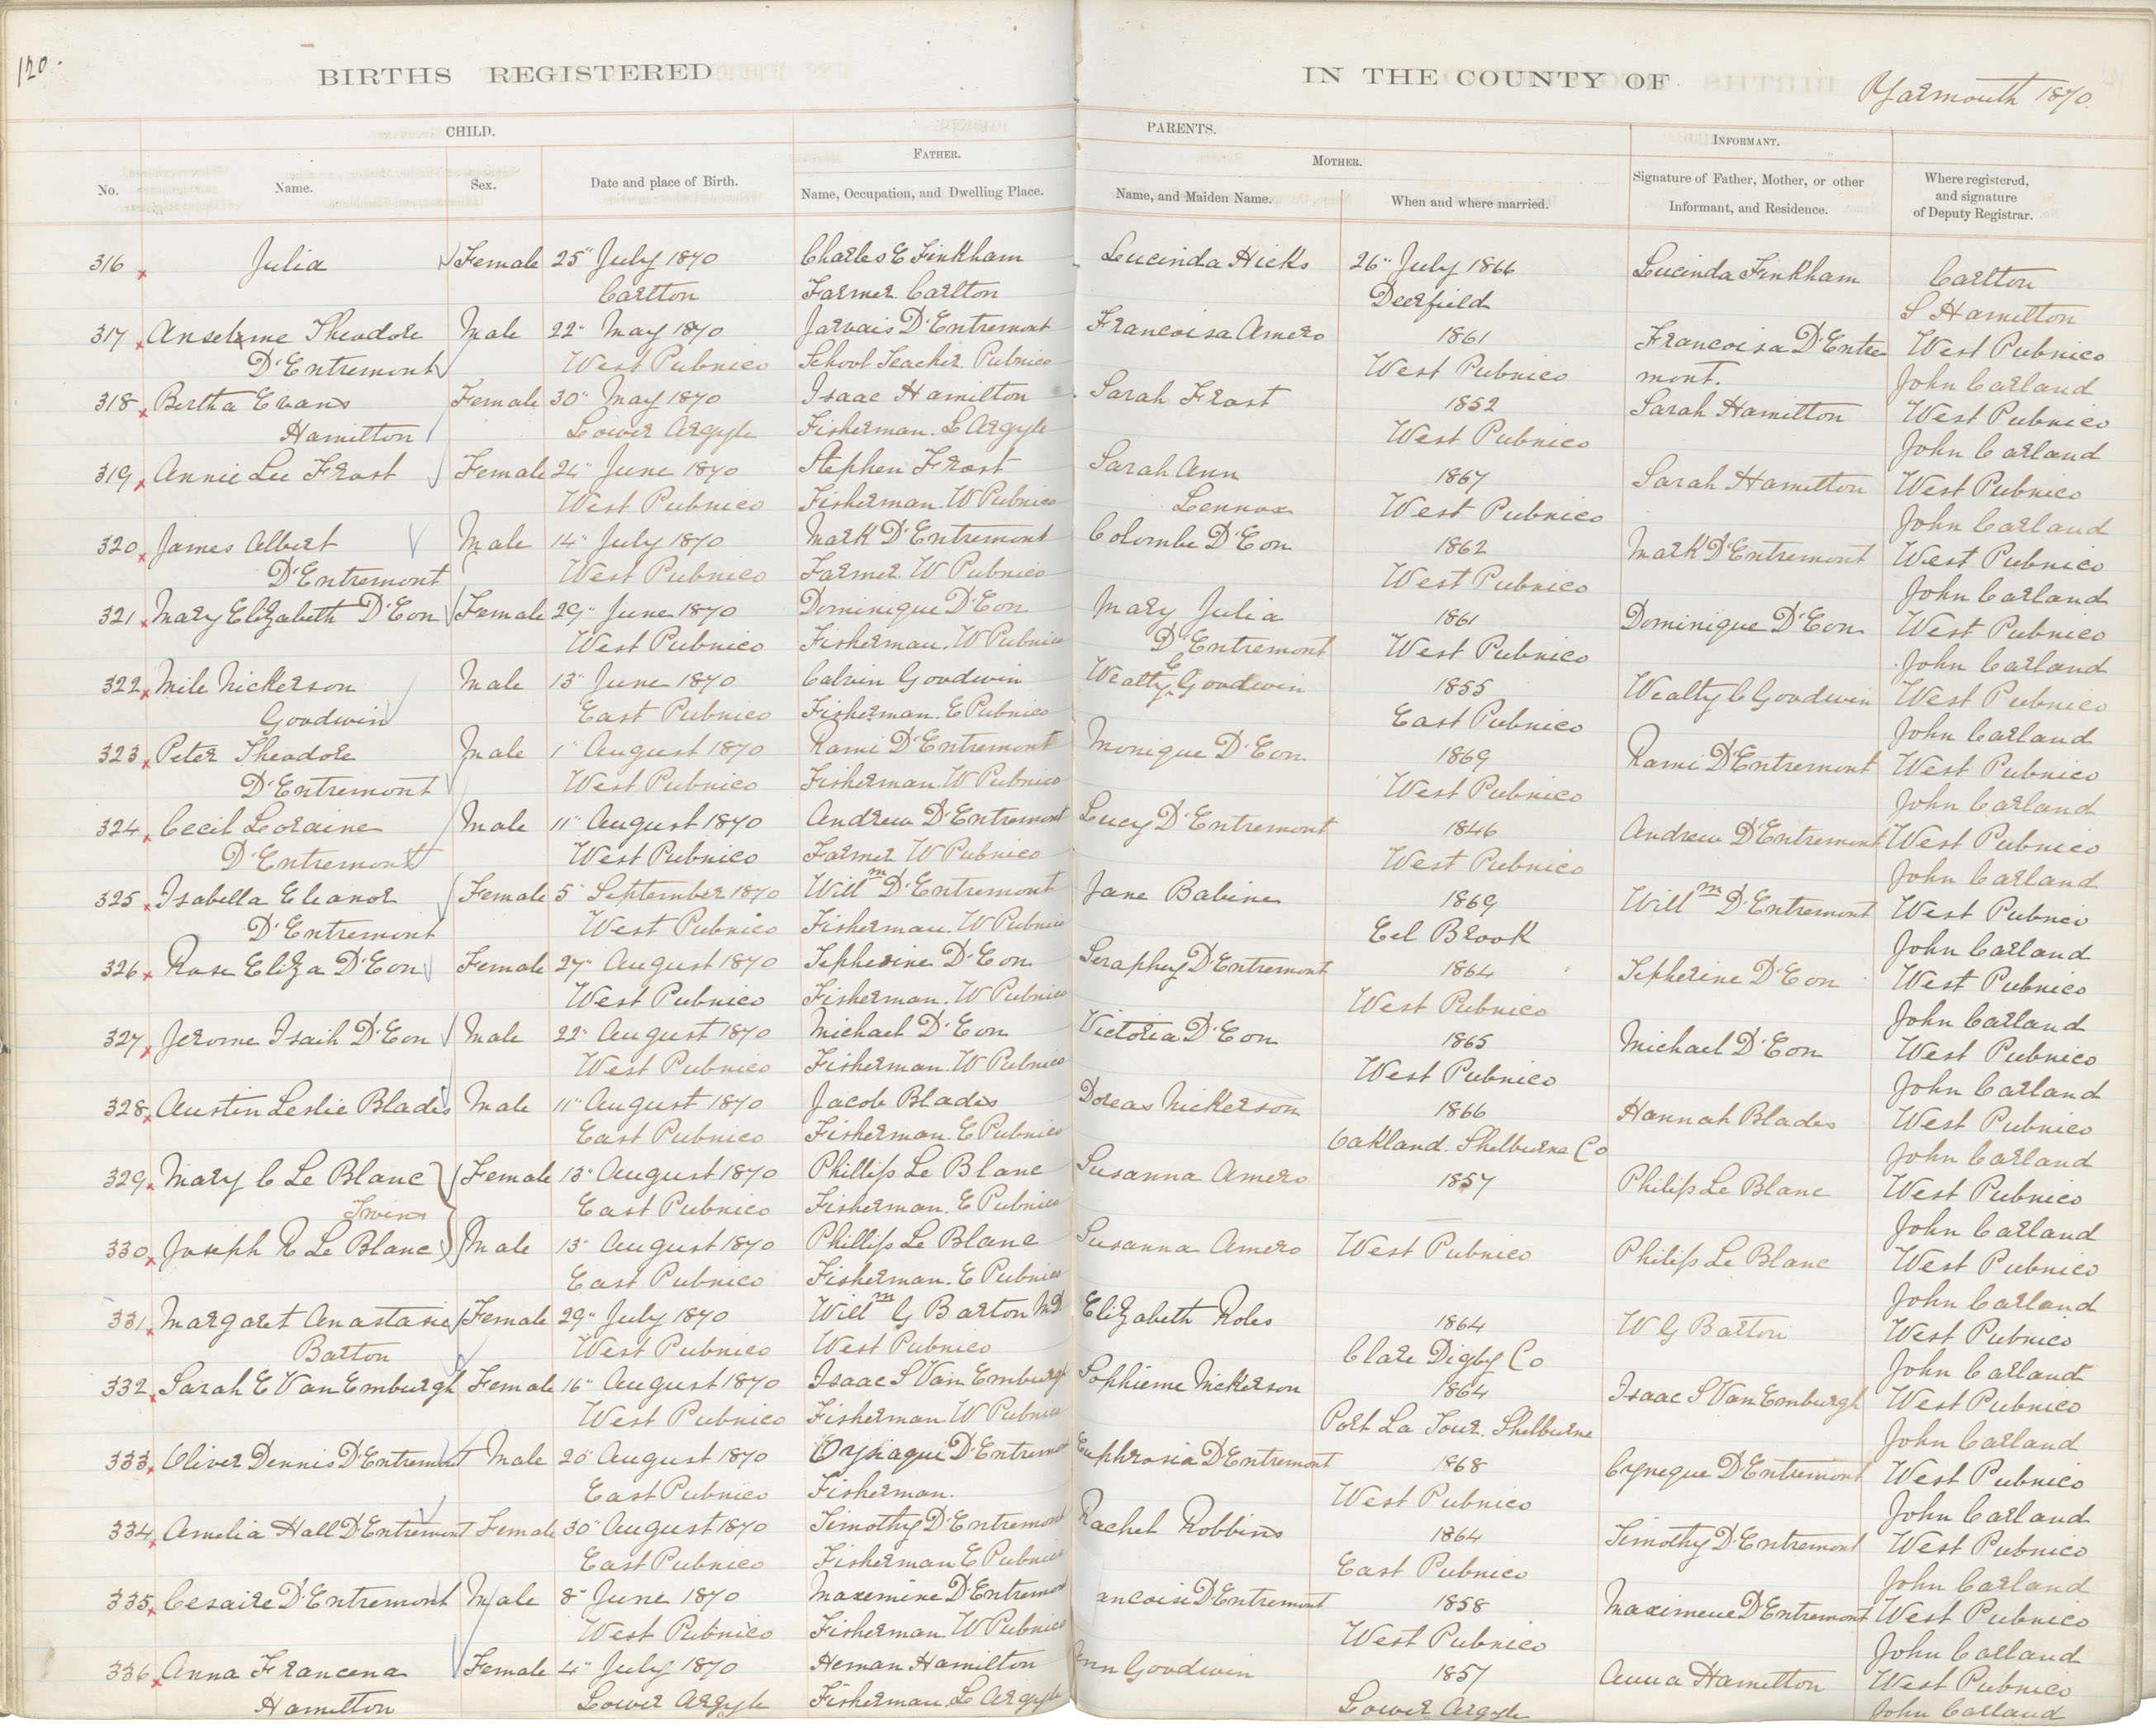 120.
BIRTHS REGISTERED IN THE COUNTY OF Yarmouth 1870.
CHILD. PARENTS. INFORMANT.
FATHER. MOTHER.
No. Name. Sex. Date and place of Birth. Name, Occupation, and Dwelling Place. Name, and Maiden Name. When and where married. Signature of Father, Mother, or other Informant, and Residence. Where registered, and signature of Deputy Registrar.
316 Julia Female 25" July 1870 Charles E Finkham Lucinda Hicks 26" July 1866 Lucinda Finkham Carlton
Carlton Farmer. Carlton Deerfield S Hamilton
317 Anselme Theodore Male 22" May 1870 Jarvais D'Entremont Francoisa Amero 1861 Francoisa D'Entre West Pubnico
D'Entremont West Pubnico School Teacher. Pubnico West Pubnico mont. John Carland
318 Bertha Evans Female 30" May 1870 Isaac Hamilton Sarah Frost 1852 Sarah Hamilton West Pubnico
Hamilton Lower Argyle Fisherman. L Argyle West Pubnico John Carland
319 Annie Lee Frost Female 24" June 1870 Stephen Frost Sarah Ann 1867 Sarah Hamilton West Pubnico
West Pubnico Fisherman. W Pubnico Lennox West Pubnico John Carland
320 James Albert Male 14" July 1870 Mark D'Entremont Colombe D'Eon 1862 Mark D'Entremont West Pubnico
D'Entremont West Pubnico Farmer. W Pubnico West Pubnico John Carland
321 Mary Elizabeth D'Eon Female 29" June 1870 Dominique D'Eon Mary Julia 1861 Dominique D'Eon West Pubnico
West Pubnico Fisherman. W Pubnico D'Entremont West Pubnico John Carland
322 Mile Nickerson Male 13" June 1870 Calvin Goodwin Wealty C Goodwin 1855 Wealty C Goodwin West Pubnico
Goodwin East Pubnico Fisherman. E Pubnico East Pubnico John Carland
323 Peter Theodore Male 1" August 1870 Rami D'Entremont Monique D'Eon 1869 Rami D'Entremont West Pubnico
D'Entremont West Pubnico Fisherman. W Pubnico West Pubnico John Carland
324 Cecil Loraine Male 11" August 1870 Andrew D'Entremont Lucy D'Entremont 1846 Andrew D'Entremont West Pubnico
D'Entremont West Pubnico Farmer W Pubnico West Pubnico John Carland
325 Isabella Eleanor Female 5" September 1870 Willm D'Entremont Jane Babine 1869 Willm D'Entremont West Pubnico
D'Entremont West Pubnico Fisherman. W Pubnico Eel Brook John Carland
326 Rose Eliza D'Eon Female 27" August 1870 Tepherine D'Eon Seraphey D'Entremont 1864 Tepherine D'Eon West Pubnico
West Pubnico Fisherman. W Pubnico West Pubnico John Carland
327 Jerome Isaih D'Eon Male 22" August 1870 Michael D'Eon Victoria D'Eon 1865 Michael D'Eon West Pubnico
West Pubnico Fisherman. W Pubnico West Pubnico John Carland
328 Austin Leslie Blades Male 11" August 1870 Jacob Blades Dorcas Nickerson 1866 Hannah Blades West Pubnico
East Pubnico Fisherman. E Pubnico Oakland. Shelburne Co John Carland
329 Mary C Le Blanc Female 13" August 1870 Phillip Le Blanc Susanna Amero 1857 Philip Le Blanc West Pubnico
Twins East Pubnico Fisherman. E Pubnico John Carland
330 Joseph R Le Blanc Male 13" August 1870 Phillip Le Blanc Susanna Amero West Pubnico Philip Le Blanc West Pubnico
East Pubnico Fisherman. E Pubnico John Carland
331 Margaret Anastasie Female 29" July 1870 Willm G Barton MD Elizabeth Roles 1864 W G Barton West Pubnico
Barton West Pubnico West Pubnico Clare Digby Co John Carland
332 Sarah E Van Emburgh Female 16" August 1870 Isaac S Van Emburgh Sophieme Nickerson 1864 Isaac S Van Emburgh West Pubnico
West Pubnico Fisherman. W Pubnico Port La Tour. Shelburne John Carland
333 Oliver Dennis D'Entremont Male 20" August 1870 D'Entremont Euphrosia D'Entremont 1868 Cyneque D'Entremont West Pubnico
East Pubnico Fisherman. West Pubnico John Carland
334 Amelia Hall D'Entremont Female 30" August 1870 Timothy D'Entremont Rachel Robbins 1864 Timothy D'Entremont West Pubnico
East Pubnico Fisherman E Pubnico East Pubnico John Carland
335 Cesaire D'Entremont Male 8" June 1870 Maxemine D'Entremont ancoise D'Entremont 1858 Maximene D'Entremont West Pubnico
West Pubnico Fisherman. W Pubnico West Pubnico John Carland
336 Anna Francena Female 4" July 1870 Heman Hamilton Ann Goodwin 1857 Anna Hamilton West Pubnico
Hamilton Lower Argyle Fisherman. L Argyle Lower Argyle John Carland